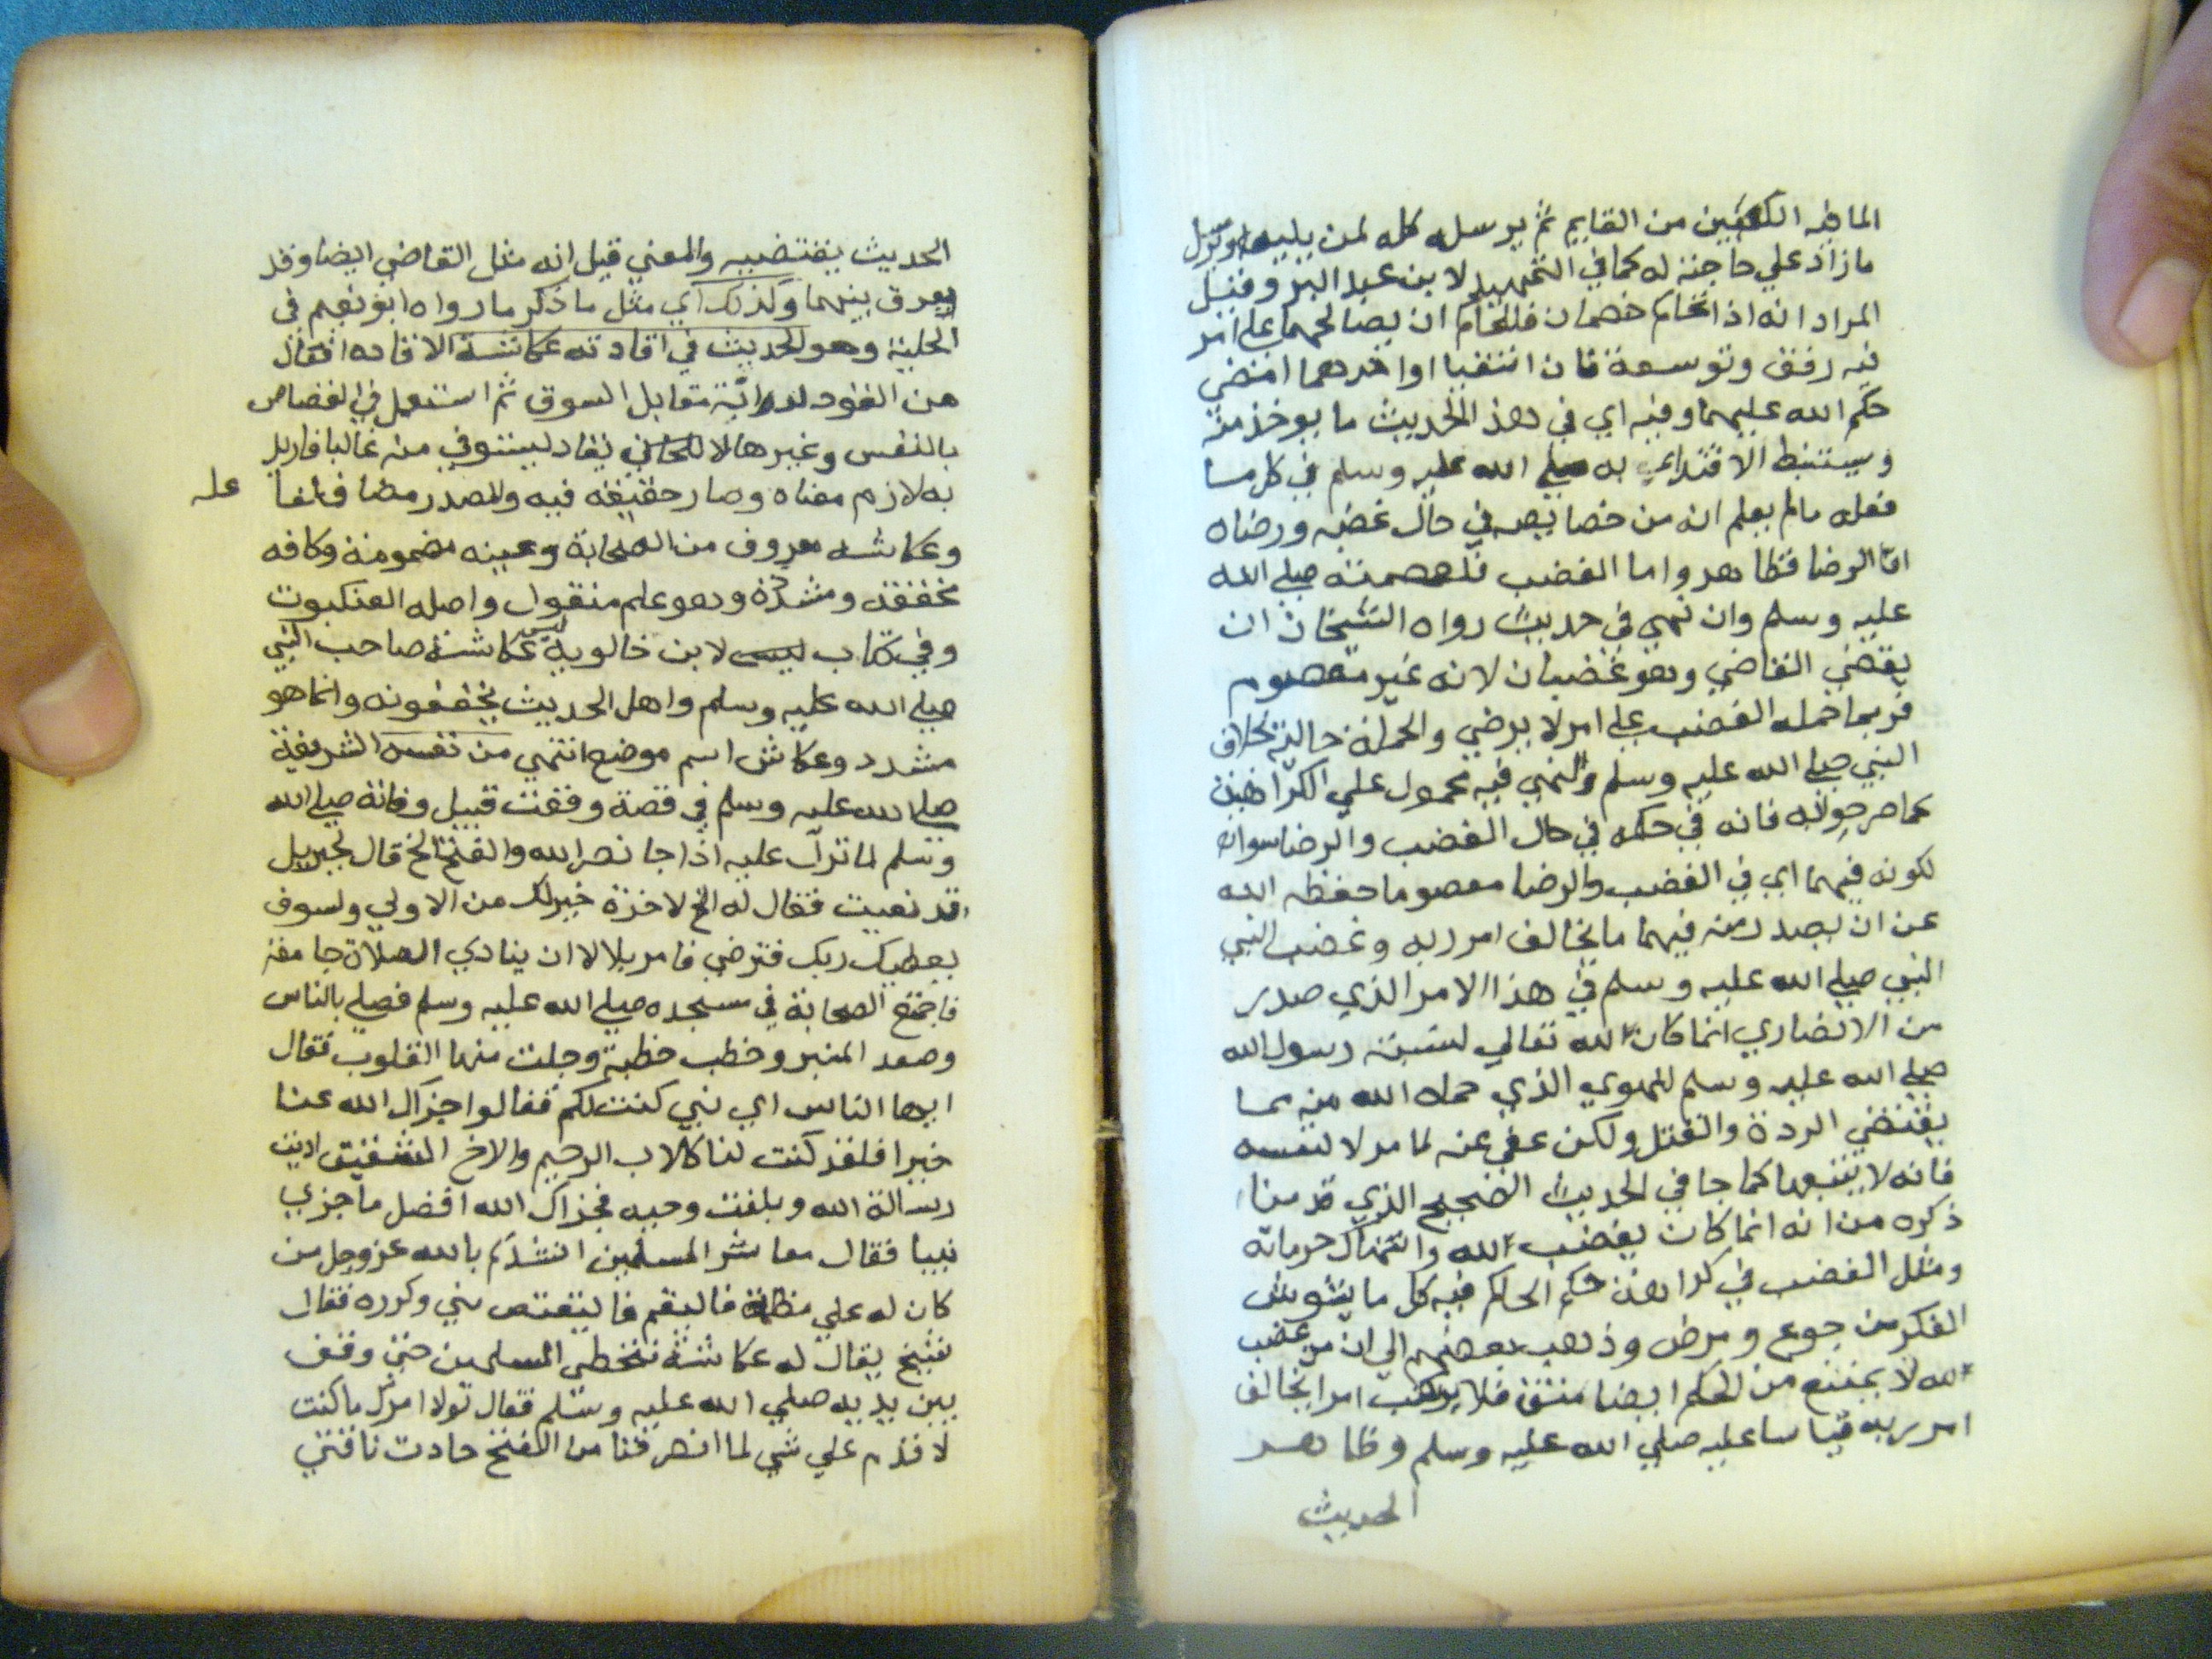 الما فيه الكعبين من القايم ثم يرسله كله لمن يليه او يترك
ما زاد علي حاجته له كما في التمهيد لابن عبد البر وقيل
المراد انه اذا تحاكم خصمان فللحاكم ان يصالحهما علي امر
فيه رفق وتوسعة فان اتفقا او احدهما امضي
حكم الله عليهما وفيه اي في هذا الحديث ما يوخذ منه
ويستنبط الاقتداي به صلي الله عليه وسلم في كل ما
فعله مالم يعلم انه من خصايصه في حال غضبه ورضاه
اما الرضا فظاهر واما الغضب فلعصمته صلي الله
عليه وسلم وان نهي في حديث رواه الشيخان ان
يقضي القاضي وهو غضبان لانه غير معصوم
فربما حمله الغضب علي امر لا يرضي والجملة حالية بخلاف
النبي صلي الله عليه وسلم والنهي فيه محمول علي الكراهية
كما صرحوا به فانه في حكمه في حال الغضب والرضا سواء
لكونه فيهما اي في الغضب والرضا معصوما حفظه الله
عن ان يصدر منه فيهما ما يخالف امر ربه وغضب النبي
النبي صلي الله عليه وسلم في هذا الامر الذي صدر
من الانصاري انما كان لله تعالي لنسبته رسول الله
صلي الله عليه وسلم للهوي الذي حماه الله منه مما
يقتضي الردة والقتل ولكن عفي عنه لما مر لا لنفسه
فانه لا يتبعها كما جا في الحديث الصحيح الذي قدمنا
ذكره من انه انما كان يغضب لله وانتهاك حرماته
ومثل الغضب في كراهة حكم الحاكم فيه كل ما يشوش
الفكر من جوع ومرض وذهب بعضهم الي ان من غضب
لله لا يمتنع من الحكم ايضا منتف فلا يرتكب امرا يخالف
امر ربه قياسا عليه صلي الله عليه وسلم وظاهر
الحديث
الحديث يقتضيه والمعني قيل انه مثل القاضي ايضا وقد
يفرق بينهما وكذلك اي مثل ما ذكر ما رواه ابو نعيم في
الحلية وهو الحديث في اقادته عكاشة الاقاده افعال
من القود لدابة مقابل السوق ثم استعمل في القصاص
بالنفس وغيرها لا للجاني يقاد ليستوفي منه غالبا فاريد
به لازم معناه وصار حقيقة فيه والمصدر مضاف لفا عله
وعكاشه معروف من الصحابة وعينه مضمومة وكافه
مخففة ومشددة وهو علم منقول واصله العنكبوت
وفي كتاب ليس لابن خالويه عكاشة صاحب النبي
صلي الله عليه وسلم واهل الحديث يخففونه وانما هو
مشدد وعكاش اسم موضع انتهي من نفسه الشريفة
صلي الله عليه وسلم في قصة وقعت قبيل وفاته صلي الله
وسلم لما نزلت عليه اذا جا نصر الله والفتح الخ قال لجبريل
قد نعيت فقال له الاخرة خير لك من الاولي ولسوف
يعطيك ربك فترضي فامر بلالا ان ينادي الصلاة جامعة
فاجتمع الصحابة في مسجده صلي الله عليه وسلم فصلي بالناس
وصعد المنبر وخطب خطبة وجلت منها القلوب فقال
ايها الناس اي نبي كنت لكم فقالوا جزاك الله عنا
خيرا فلقد كنت لنا كالاب الرحيم والاخ الشفيق اديت
رسالة الله وبلغت وحيه فجزاك الله افضل ما جزي
نبيا فقال معاشر المسلمين انشدكم بالله عز وجل من
كان له علي مظلمة فاليقم فاليقتص مني وكرره فقال
شيخ يقال له عكاشة فتخطي المسلمين حتي وقف
بين يديه صلي الله عليه وسلم فقال لولا امرك ما كنت
لاقدم علي شي لما انصرفنا من الفتح حادت ناقتي